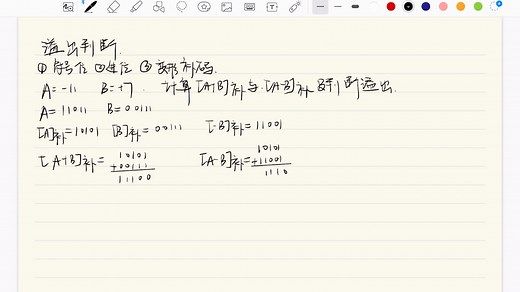 溢出判断.
① 符号位 ② 进位 ③ 变形补码.
A=-11 B=+7. 计算[A+B]补与[A-B]补 及判断溢出.
A=11011 B=00111
[A]补=10101 [B]补=00111 [-B]补=11001
[A+B]补= 10101 [A-B]补= 10101
+00111 +11001
11100 1110